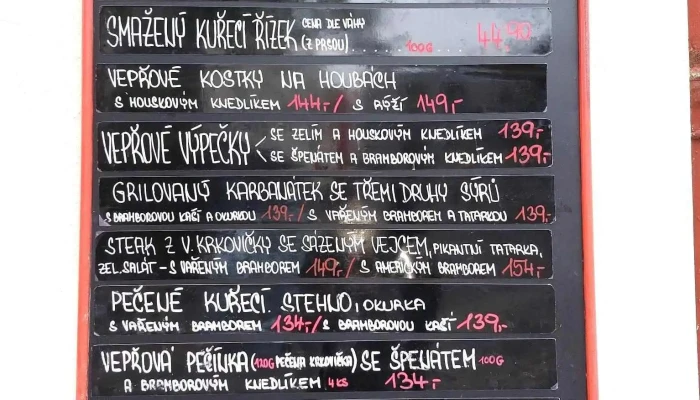 SMAŽENÝ KUŘECÍ ŘÍZEK CENA DLE VÁHY
(Z PRSOU) .... 100G .... 44,90
VEPŘOVÉ KOSTKY NA HOUBÁCH
S HOUSKOVÝM KNEDLÍKEM 144,-/ S RÝŽÍ 149,-
VEPŘOVÉ VÝPEČKY < SE ZELÍM A HOUSKOVÝM KNEDLÍKEM 139,-
SE ŠPENÁTEM A BRAMBOROVÝM KNEDLÍKEM 139,-
GRILOVANÝ KARBANÁTEK SE TŘEMI DRUHY SÝRŮ
S BRAMBOROVOU KAŠÍ A OKURKOU 139,-/ S VAŘENÝM BRAMBOREM A TATARKOU 139,-
STEAK Z V. KRKOVIČKY SE SÁZENÝM VEJCEM, PIKANTNÍ TATARKA,
ZEL. SALÁT - S VAŘENÝM BRAMBOREM 149,-/ S AMERICKÝM BRAMBOREM 154,-
PEČENÉ KUŘECÍ STEHNO, OKURKA
S VAŘENÝM BRAMBOREM 134,-/ S BRAMBOROVOU KAŠÍ 139,-
VEPŘOVÁ PEČÍNKA (120G PEČENÁ KRKOVIČKA) SE ŠPENÁTEM 100G
A BRAMBOROVÝM KNEDLÍKEM 4KS 134,-